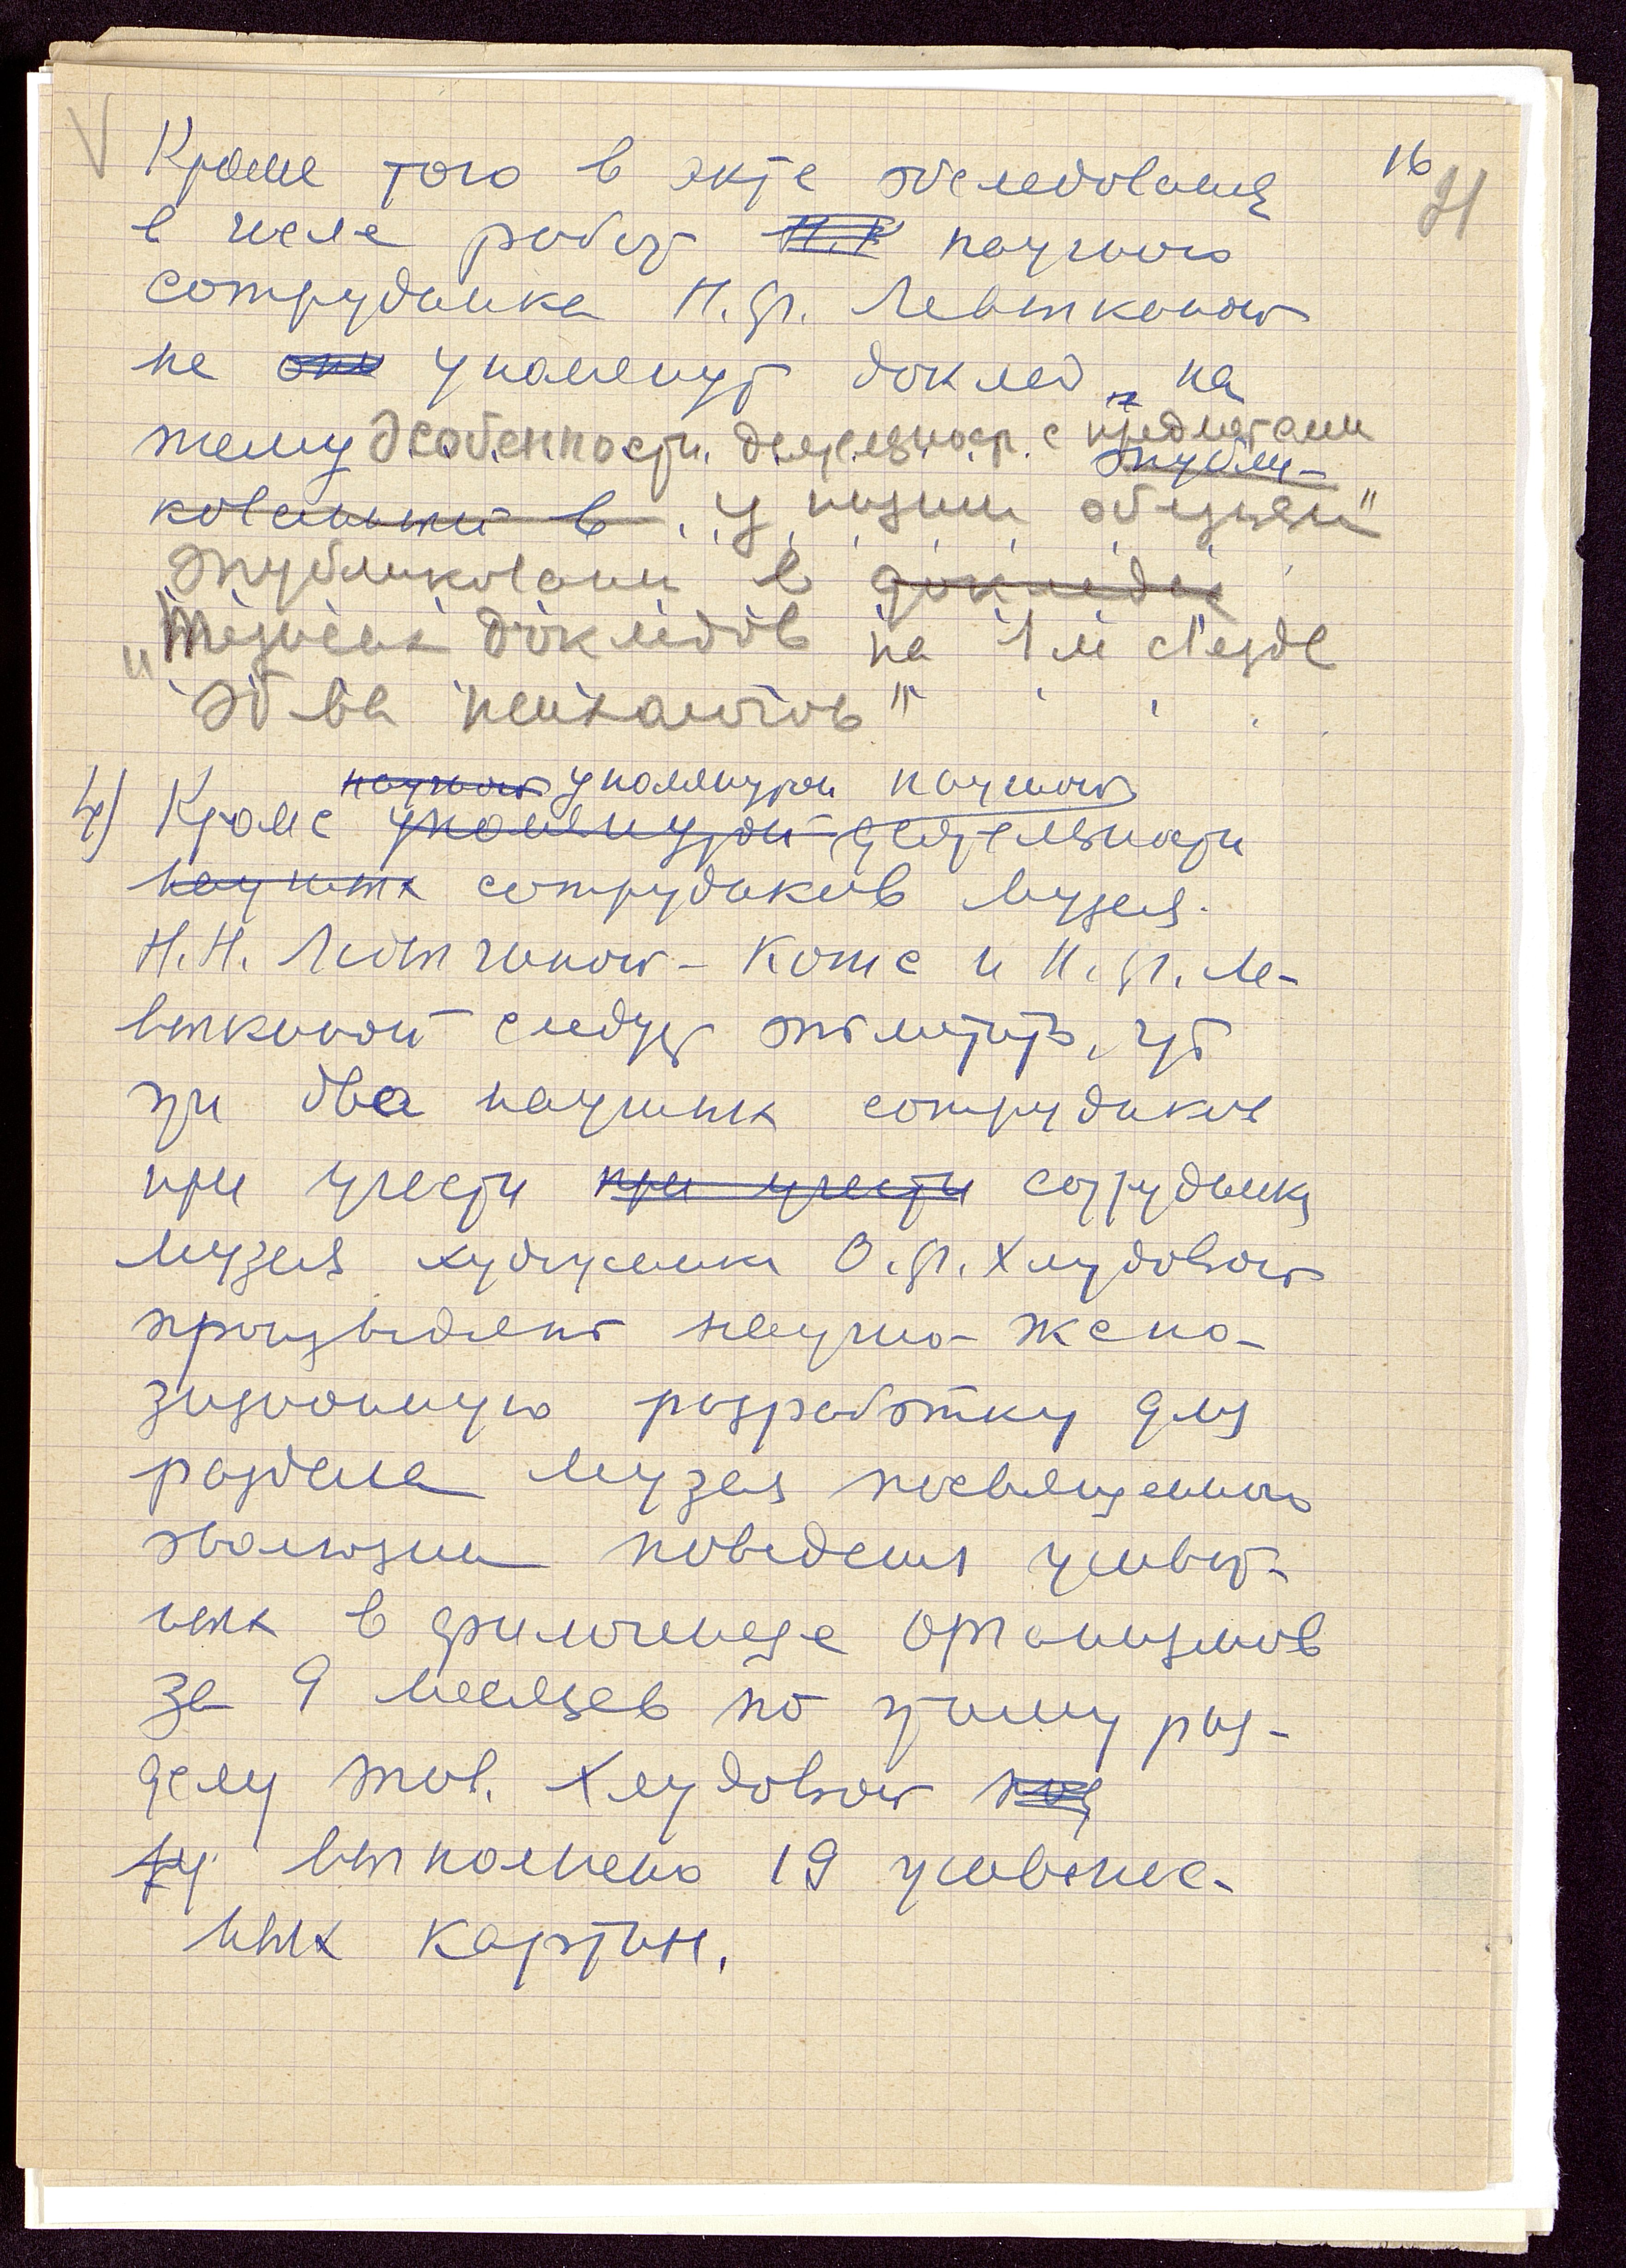 16
21
V Кроме того в акте обследования
в числе работ Н.Ф. научного
сотрудника Н.Ф. Левыкиной
не упомянут доклад „на
тему Особенности деятельност. с предметами
опубли-
кованный в у низших обезьян"
опубликован в докладах
„Тезисах докладов на 1м съезде
об-ва психологов"
научной упомянутой научной
4) Кроме упомянутой деятельности
научных сотрудников музея
Н.Н. Ладыгиной-Котс и Н.Ф. Ле-
выкиной следует отметить, что
эти два научных сотрудников
при участи при участи сотрудника
музея художника О.Ф. Хлудовой
произведена научно-экспо-
зиционную разработку для
раздела музея посвященного
эволюции поведения живот-
ных в филогенезе организмов
За 9 месяцев по этому раз-
делу тов. Хлудовой
выполнено 19 живопис-
ных картин.